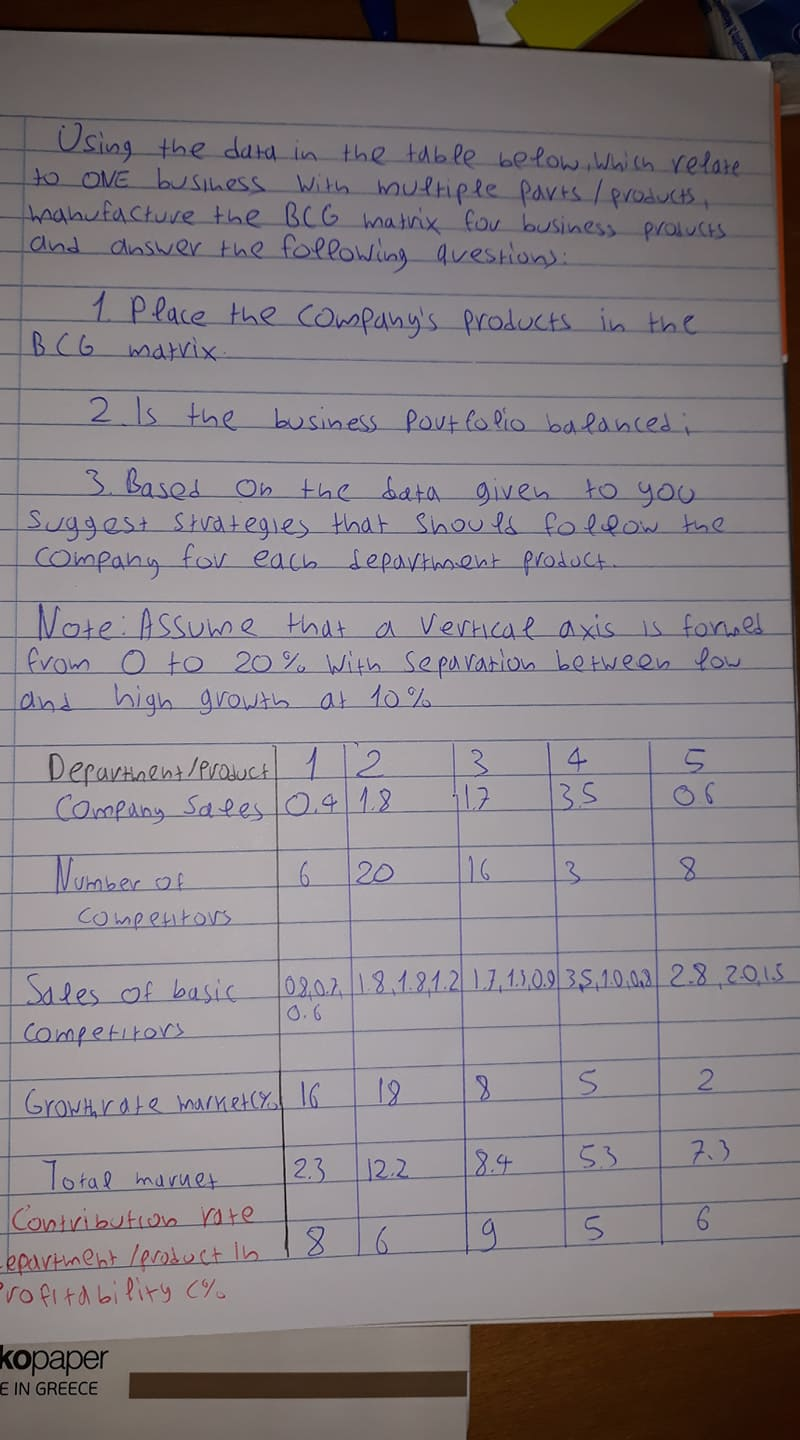 Using the data in the table below, which relate
to ONE business with multiple parts/products,
manufacture the BCG matrix for business products
and answer the following questions:
1. Place the company's products in the
BCG matrix.
2. Is the business portfolio balanced;
3. Based on the data given to you
suggest strategies that should follow the
company for each department product.
Note: Assume that a vertical axis is formed
from 0 to 20% with separation between low
and high growth at 10%
Department/product 1 2 3 4 5
Company Sales 0.4 1.8 1.7 3.5 0.6
Number of 6 20 16 3 8
competitors
Sales of basic 0.8,0.7, 1.8,1.8,1.2 1.7,1.3,0.9 3.5,1.0,0.8 2.8,2.0,1.5
0.6
competitors
Growth rate market(% 16 18 8 5 2
Total market 2.3 12.2 8.4 5.3 7.3
Contribution rate
epartment/product in 8 6 9 5 6
rofitability (%
kopaper
E IN GREECE